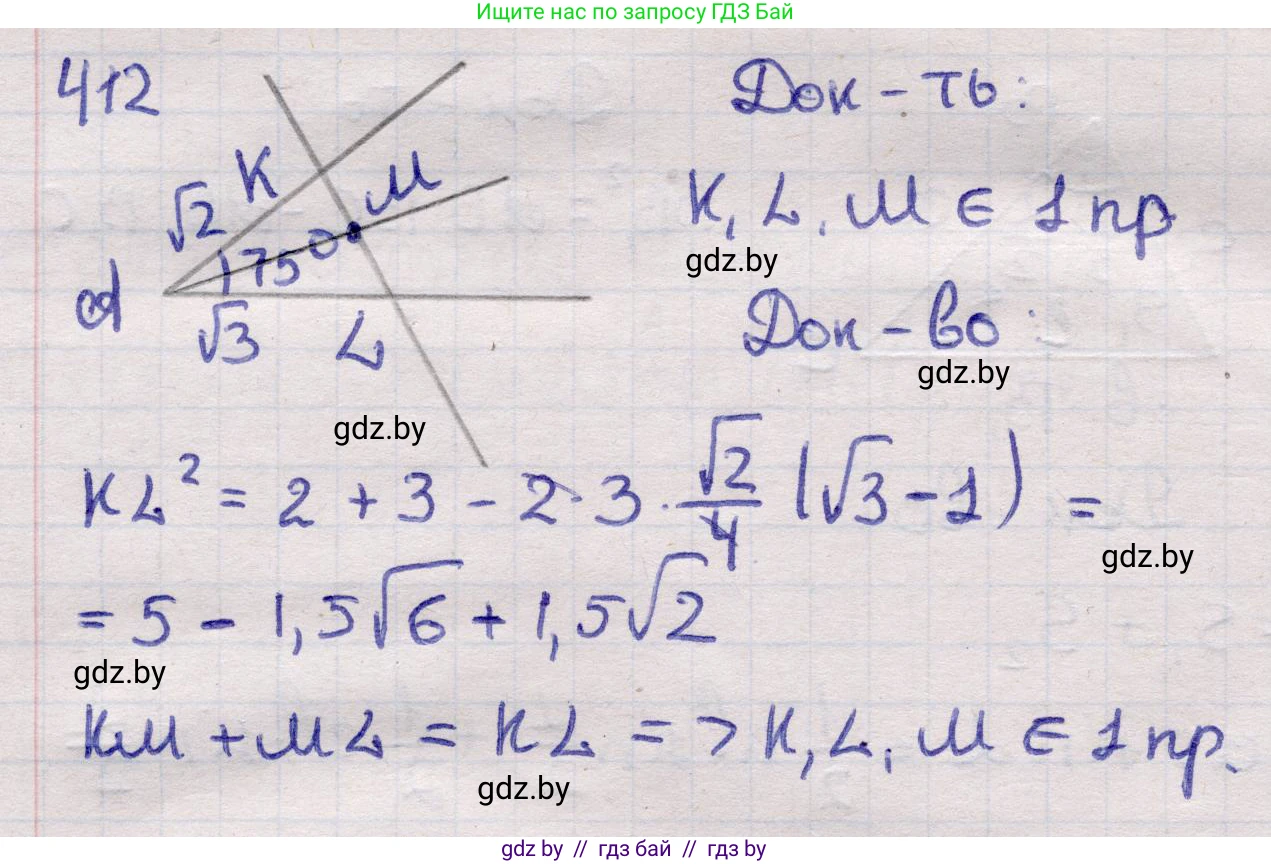 Ищите нас по запросу ГДЗ Бай
412
Док-ть:
K
M
√2
K, L, M ∈ 1 пр
gdz.by
75°
d
√3
L
Док-во:
gdz.by
gdz.by
KL² = 2 + 3 - 2·3·√2/4 (√3-1) =
gdz.by
= 5 - 1,5√6 + 1,5√2
gdz.by
KM + ML = KL => K, L, M ∈ 1 пр.
gdz.by
gdz by // гдз бай // гдз by